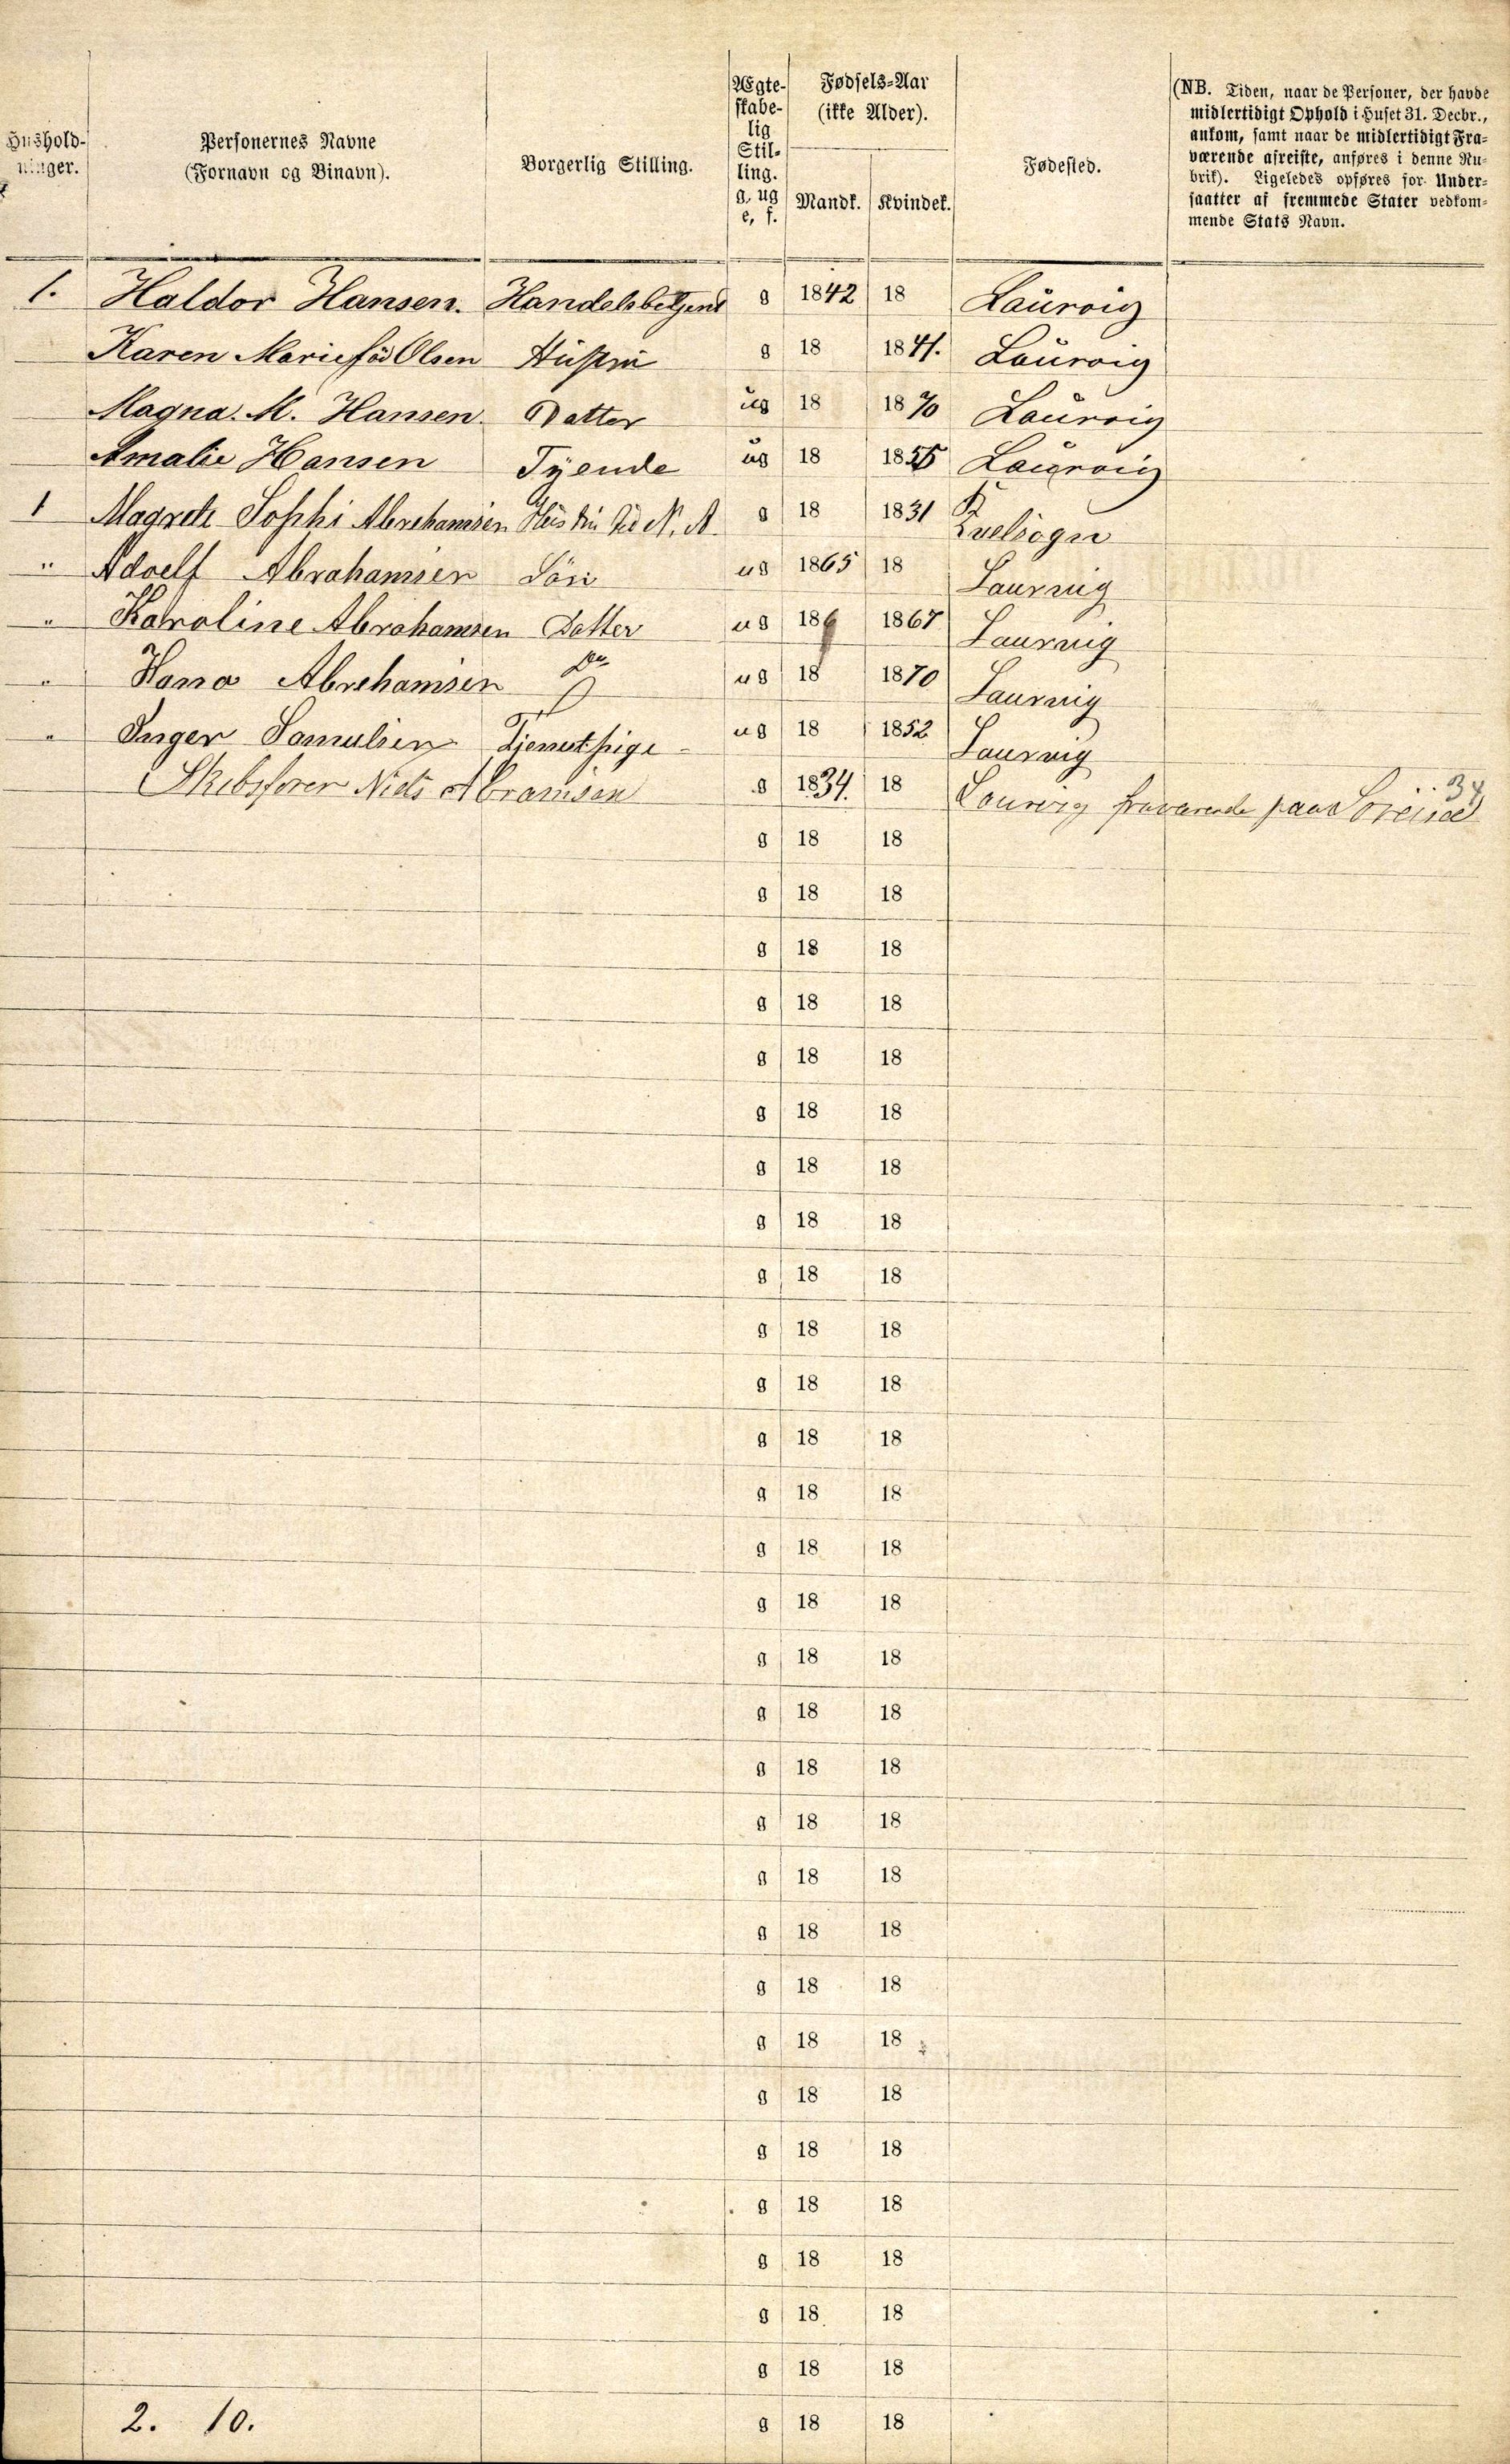 Hushold-
ninger.
Personernes Navne
(Fornavn og Binavn).
Borgerlig Stilling.
Ægte-
skabe-
lig
Stil-
ling.
g, ug
e, f.
Fødsels-Aar
(ikke Alder).
Mandk. Kvindek.
Fødested.
(NB. Tiden, naar de Personer, der havde
midlertidigt Ophold i Huset 31. Decbr.,
ankom, samt naar de midlertidigt Fra-
værende afreiste, anføres i denne Ru-
brik). Ligeledes opføres for Under-
saatter af fremmede Stater vedkom-
mende Stats Navn.
1. Haldor Hansen. Handelsbetjent g 1842 18 Laurvig
Karen Marie fød Olsen Hustru g 18 1841. Laurvig
Magna. M. Hansen. Datter ug 18 1870 Laurvig
Amalie Hansen Tyende ug 18 1855 Laurvig
1 Magrete Sophi Abrehamsen Hustru til N. A. g 18 1831 Kvelsogn
" Adoelf Abrahamsen Søn ug 1865 18 Laurvig
" Karoline Abrahamsen Datter ug 186 1867 Laurvig
" Hana Abrehamsen Do ug 18 1870 Laurvig
" Inger Samulsen Tjenestpige ug 18 1852 Laurvig
Skibsfører Niels Abramsen g 1834. 18 Laurvig fraværende paa Søreise
34
g 18 18
g 18 18
g 18 18
g 18 18
g 18 18
g 18 18
g 18 18
g 18 18
g 18 18
g 18 18
g 18 18
g 18 18
g 18 18
g 18 18
g 18 18
g 18 18
g 18 18
g 18 18
g 18 18
g 18 18
g 18 18
g 18 18
g 18 18
g 18 18
g 18 18
g 18 18
g 18 18
g 18 18
g 18 18
2. 10. g 18 18